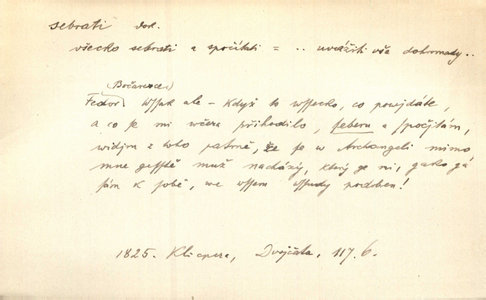 sebrati dok.
všecko sebrati a spočítati = .. uvážiti vše dohromady ..
(Bočarence)
Fedor) Wssak ale – když to wssecko, co powjdáte,
a co se mi wčera přihodilo, seberu a spočjtám,
widjm z toho patrně, že se w Archangeli mimo
mne gesstě muž nacházý, který ge mi, gako gá
sám k sobě, we wssem wssudy podoben!
1825. Klicpera, Dvojčata, 117, 6.